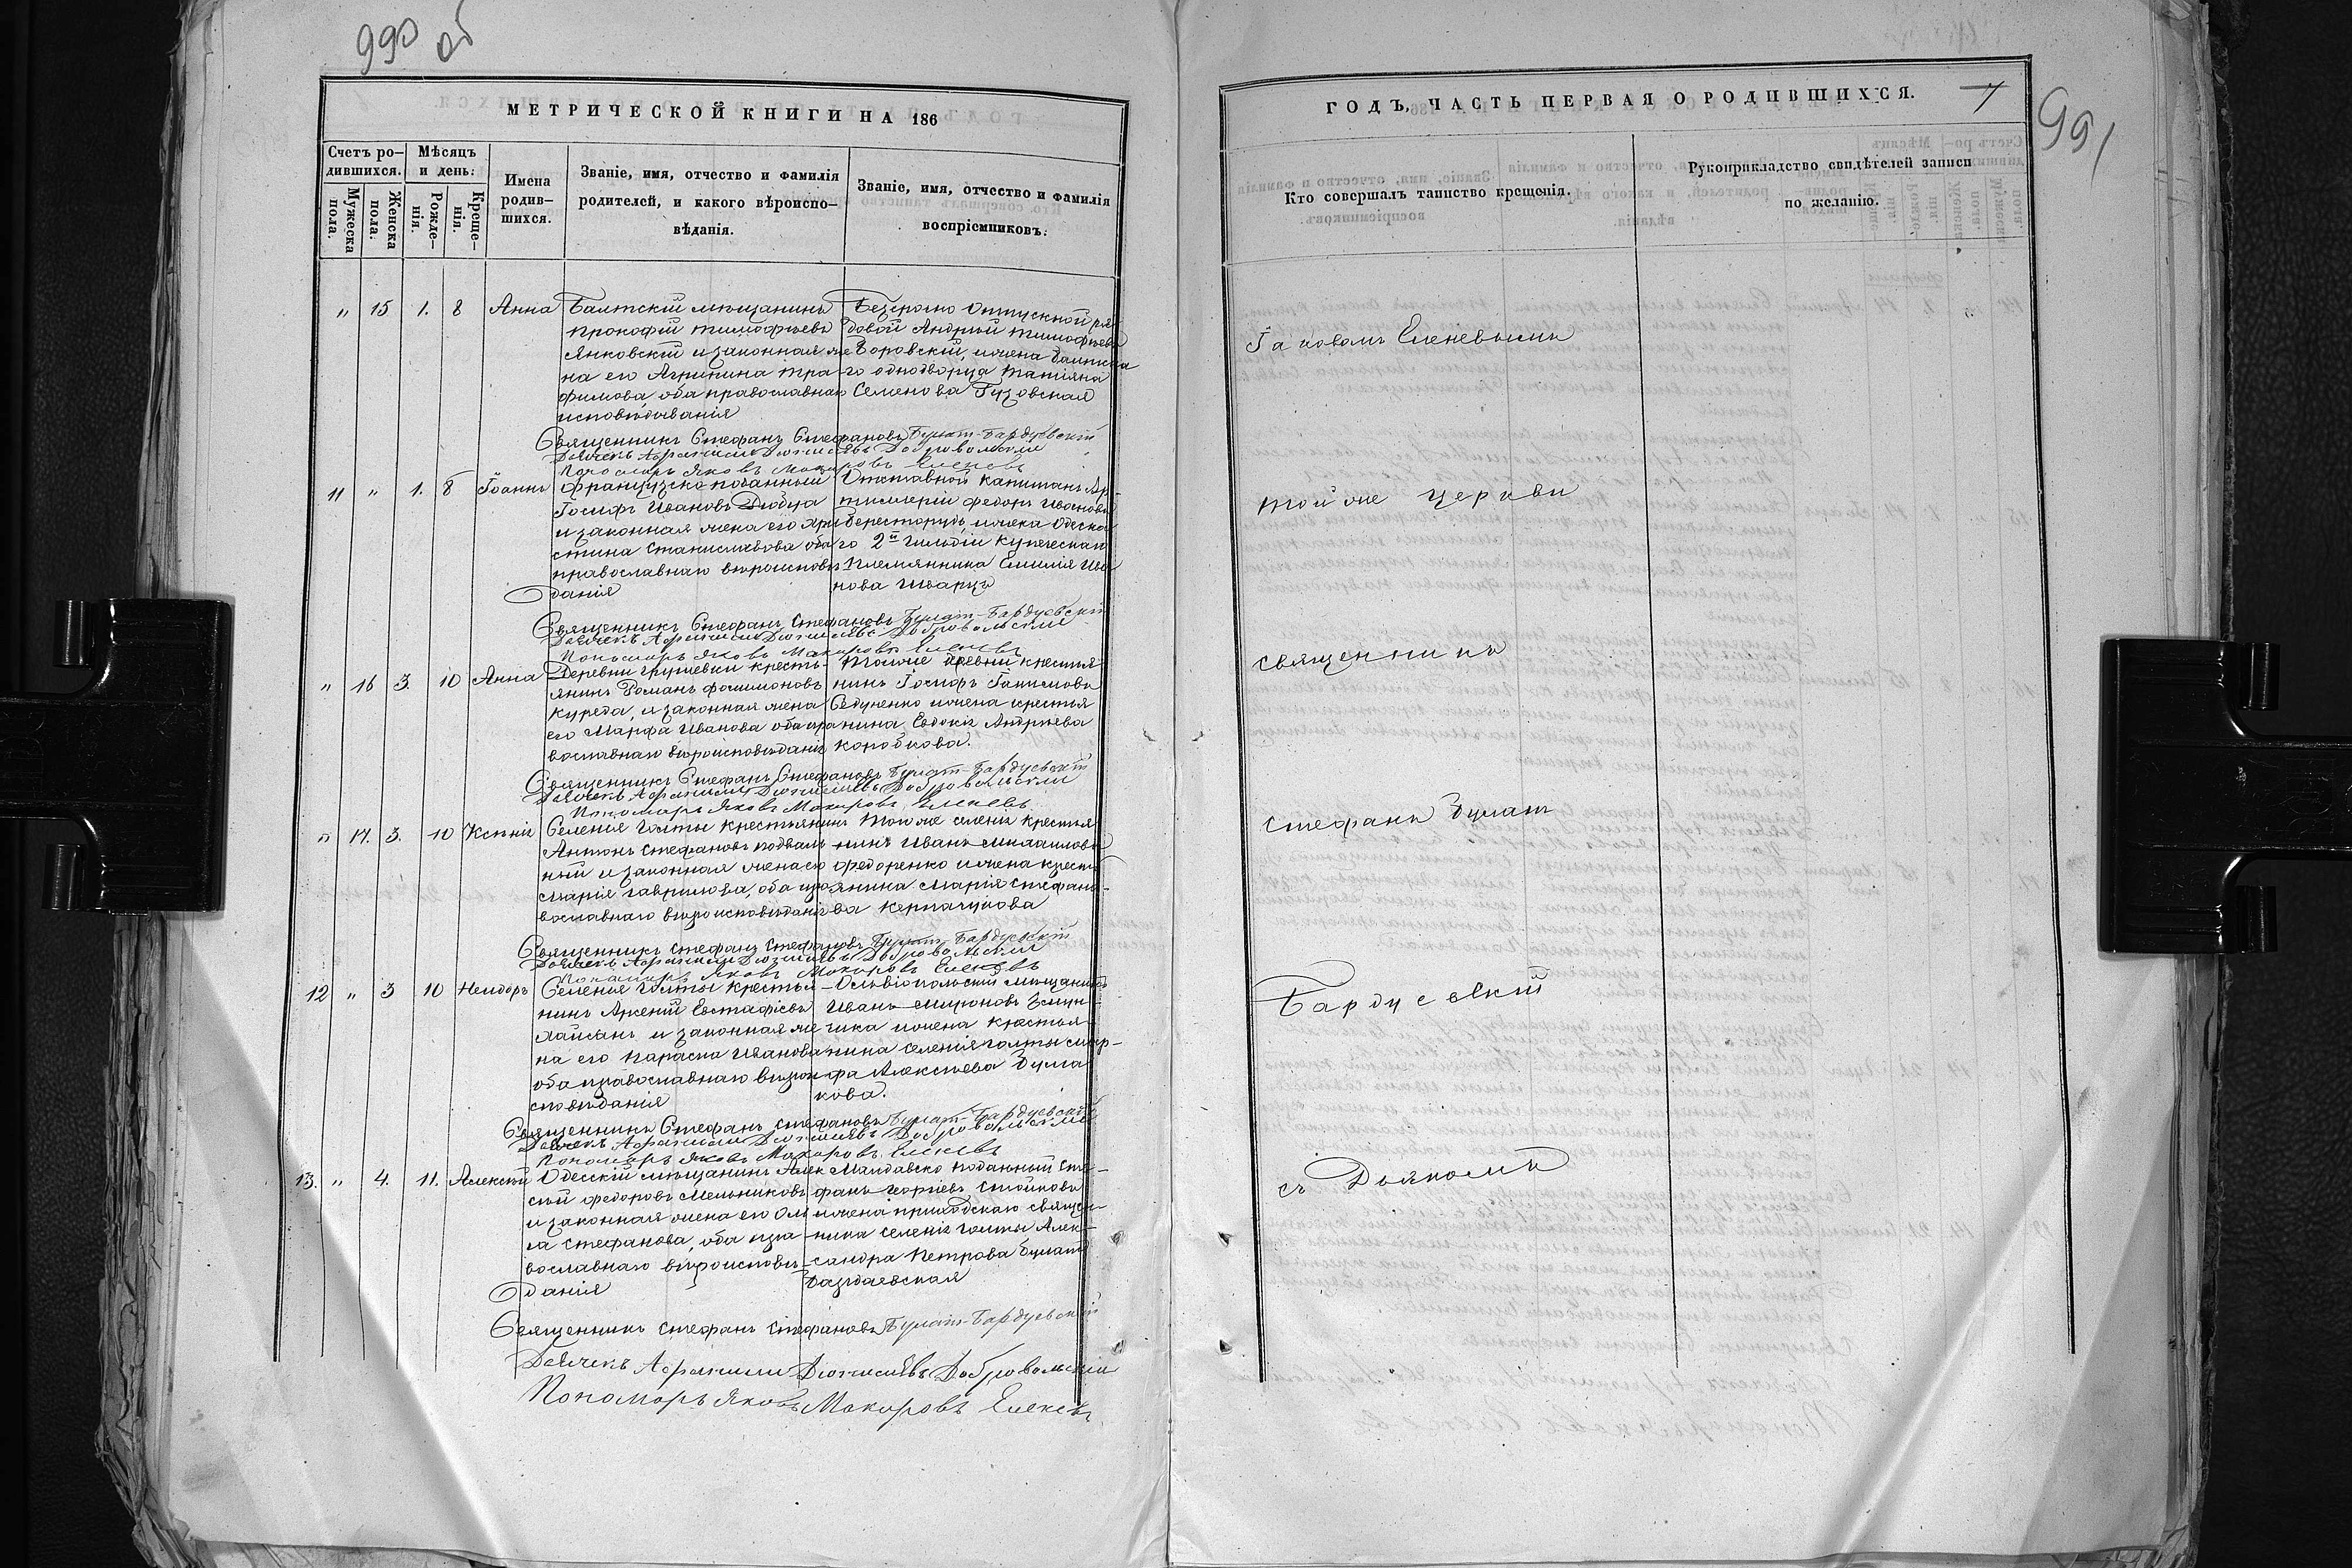 990 об
МЕТРИЧЕСКОЙ КНИГИ НА 186
Счетъ ро-
дившихся.
Мѣсяцъ
и день:
Мужеска
пола.
Женска
пола.
Рожде-
нія.
Креще-
нія.
Имена
родив-
шихся.
Званіе, имя, отчество и фамилія
родителей, и какого вѣроиспо-
вѣданія.
Званіе, имя, отчество и фамилія
воспріемниковъ.
" 15 1. 8 Анна
Балтскій мѣщанинъ
Прокофій Тимофѣевъ
Янковскій и законная же-
на его Агрипина Тра-
фимова, оба православнаго
исповѣдыванія
Безсрочно отпускной ря-
довой Андрей Тимофѣевъ
Боровскій, и жена Балтска-
го однодворца Татіяна
Семенова Гузовская
Священникъ Стефанъ Стефановъ Булат-Бардуевскій
Дьячекъ Добровольскій
Пономарь Яковъ Макаровъ Еленевъ
11 " 1. 8 Іоаннъ
Французско-поданный
Іосифъ Ивановъ Дюбуа
и законная жена его Хри-
стина Станиславова оба
православнаго вѣроисповѣ-
данія
Отставной капитанъ Ар-
тилеріи Федоръ Ивановъ
и жена Одеска-
го 2й гильдіи купеческаго
племянника Емилія Ива-
нова Шварцъ
Священникъ Стефанъ Стефановъ Булат-Бардуевскій
Дьячекъ Добровольскій
Пономарь Яковъ Макаровъ Еленевъ
" 16 3. 10 Анна
Деревни Грушевки кресть-
янинъ Романъ Филимоновъ
Курета, и законная жена
его Марфа Иванова оба пра-
вославнаго вѣроисповѣданія
Тойже деревни крестья
нинъ Іосифъ
и жена крестья
нина Евдокія Андреева
Коробкова.
Священникъ Стефанъ Стефановъ Булат-Бардуевскій
Дьячекъ Добровольскій
Пономарь Яковъ Макаровъ Еленевъ
" 17. 3. 10 Ксенія
Селенія Голты крестьянинъ
Антонъ Стефановъ Подваль-
ный и законная жена его
Марія Гаврилова, оба пра-
вославнаго вѣроисповѣданія
Той же селеніи крестья
нинъ Иванъ Михайловъ
Федоренко и жена кресть
янина Марія Стефано-
ва
Священникъ Стефанъ Стефановъ Булат-Бардуевскій
Дьячекъ Добровольскій
Пономарь Яковъ Макаровъ Еленевъ
12 " 3 10
Селенія Голты крестья-
нинъ Арсеній Евстафіевъ
и законная же
на его Параска Иванова
оба православнаго вѣрои-
сповѣданія
Ольвіопольскій мѣщанинъ
Иванъ Мироновъ
и жена крестья-
нина селенія Голты Мар-
фа Алексѣева Була
кова.
Священникъ Стефанъ Стефановъ Булат-Бардуевскій
Дьячекъ Добровольскій
Пономарь Яковъ Макаровъ Еленевъ
13. " 4. 11. Алексѣй
Одескій мѣщанинъ Алек
сѣй Федоровъ Мельниковъ
и законная жена его Оль
га Стефанова, оба пра-
вославнаго вѣроисповѣ-
данія
Молдавско поданный Сте-
фанъ Георгіевъ Стойковъ
и жена приходскаго священ-
ника селенія Голты Алек-
сандра Петрова Булатъ
Бардаевская
Священникъ Стефанъ Стефановъ Булат-Бардуевскій
Дьячекъ Добровольскій
Пономарь Яковъ Макаровъ Еленевъ
ГОДЪ, ЧАСТЬ ПЕРВАЯ О РОДИВШИХСЯ.
7
991
Кто совершалъ таинство крещенія.
Рукоприкладство свидѣтелей записи
по желанію.
Іаковомъ Еленевымъ
той же церкви
священникъ
Стефанъ Булатъ
Бардуевскій
съ Дьякомъ